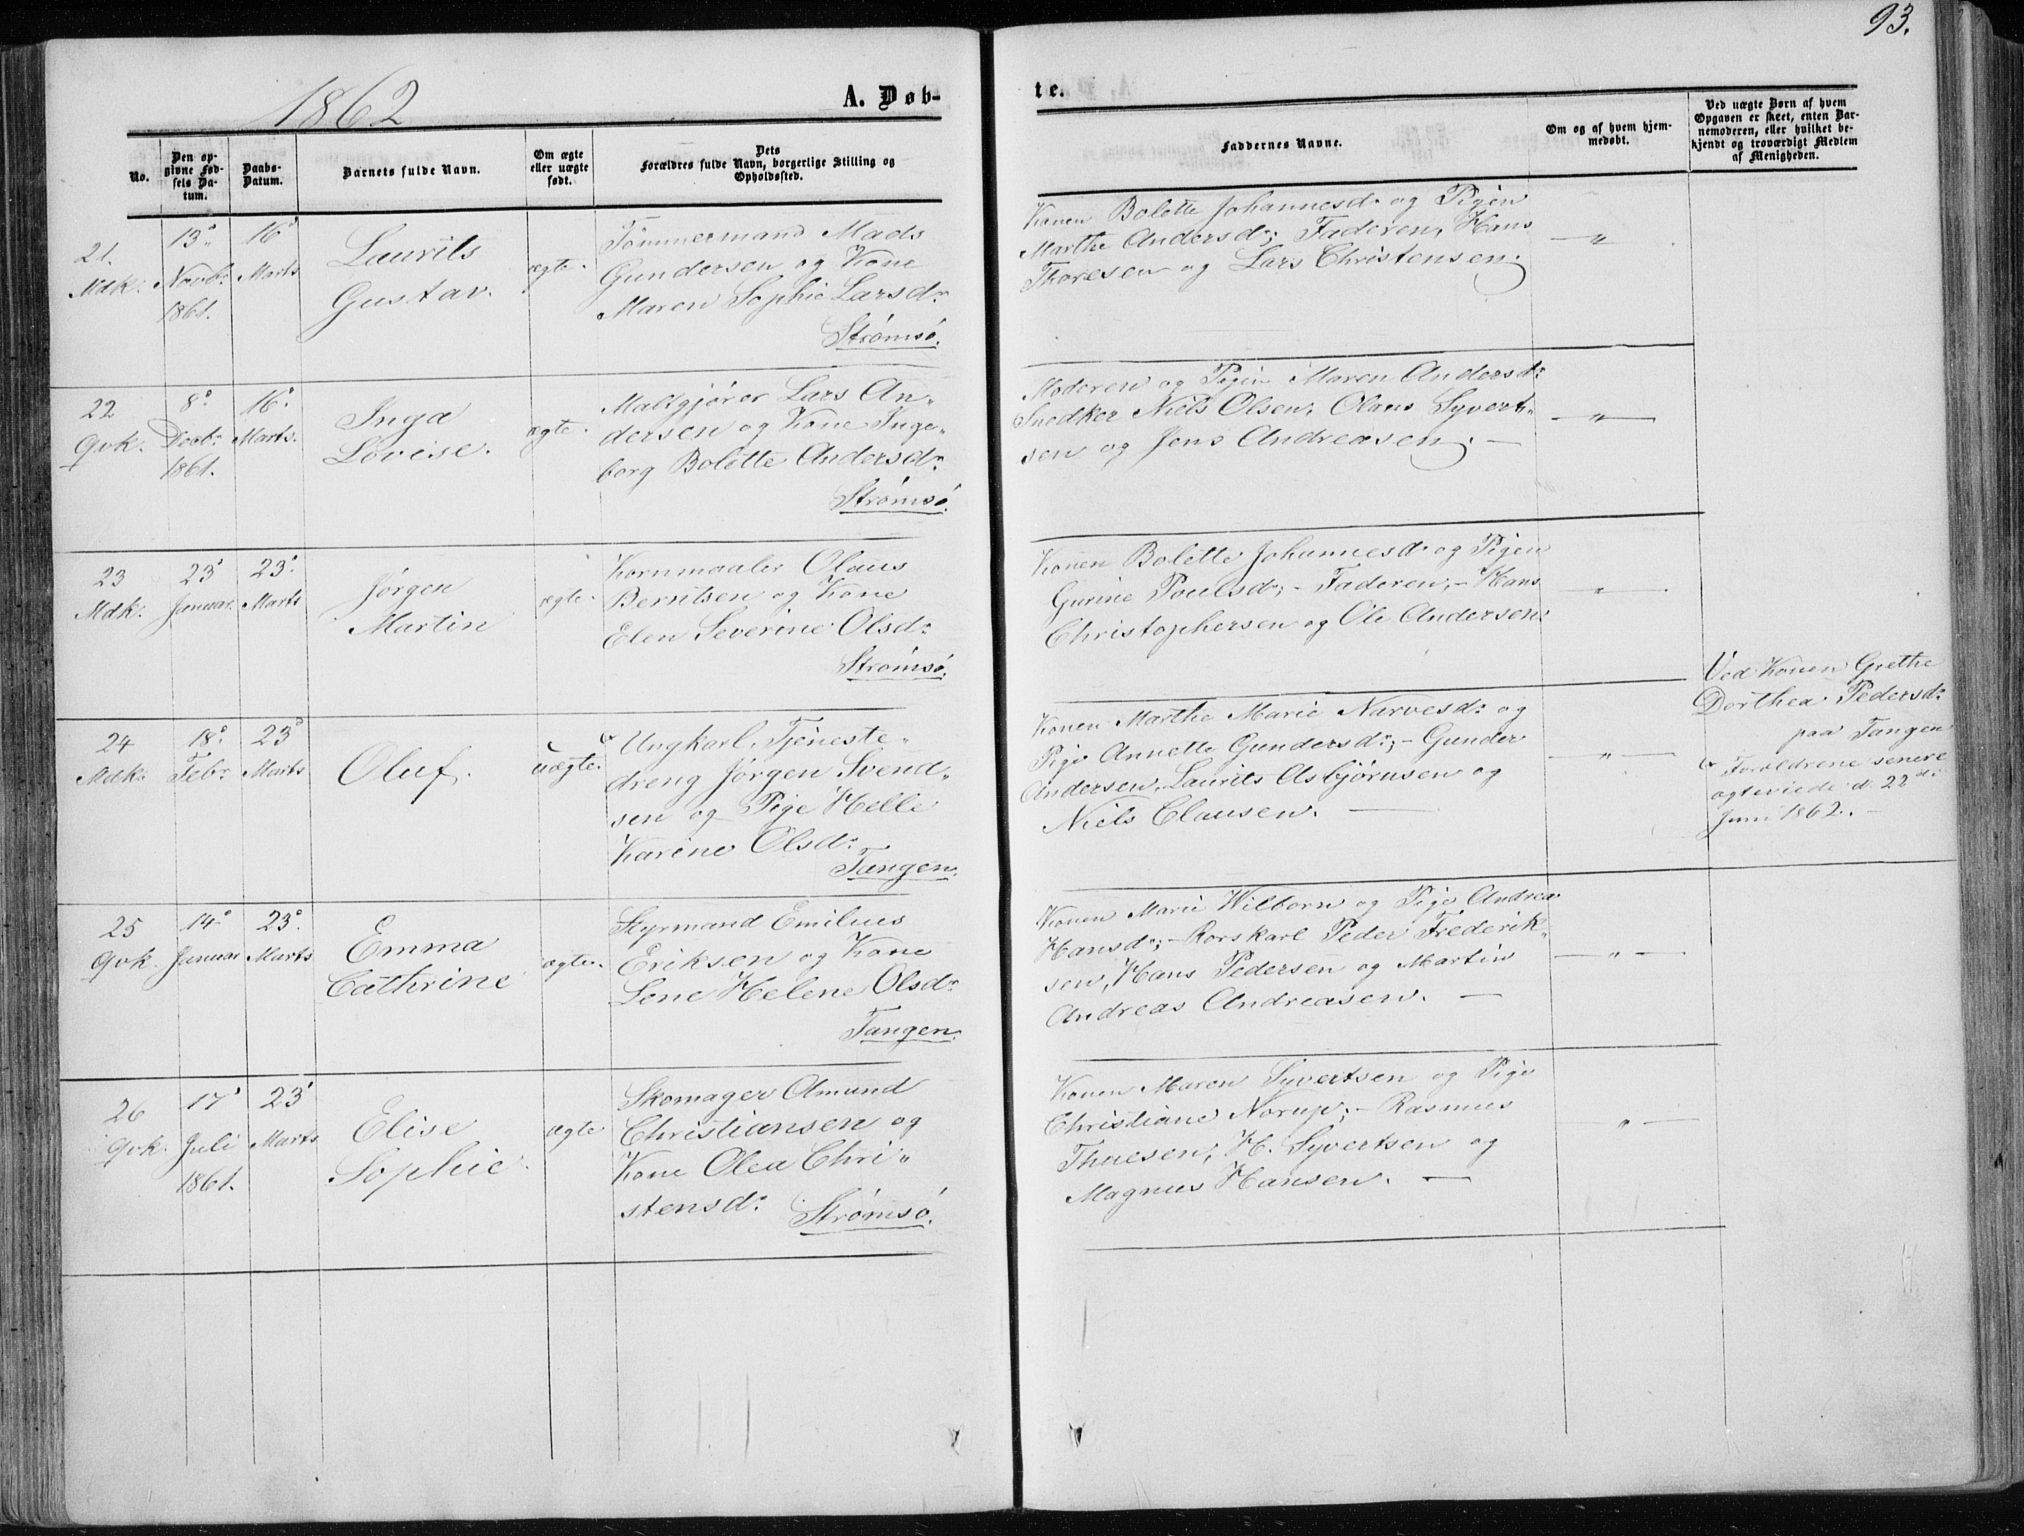 93.
1862
A. Døb-
te.
No.
Den op-
givne Fød-
sels Da-
tum.
Daabs-
Datum.
Barnets fulde Navn.
Om ægte
eller uægte
født.
Dets
Forældres fulde Navn, borgerlige Stilling og
Opholdssted.
Faddernes Navne.
Om og af hvem hjem-
medøbt.
Ved uægte Børn af hvem
Opgaven er skeet, enten Bar-
nemoderen, eller hvilket be-
kjendt og troværdigt Medlem
af Menigheden.
21.
Mdk.
13de
Novbr
1861.
16de
Marts
Laurits
Gustav.
ægte.
Tömmermand Mads
Gundersen og Kone
Maren Sophie Larsdr
Strømsö.
Konen Bolette Johannesdr og Pigen
Marthe Andersdr; Faderen, Hans
Thoresen og Lars Christensen.
— " —
22
Qvk.
8de
Decbr
1861.
16de
Marts.
Inga
Lovise.
ægte.
Maltgjører Lars An-
dersen og Kone Inge-
borg Bolette Andersdr
Strømsö.
Moderen og Pigen Maren Andersdr
Snedker Niels Olsen, Olaus Syvert-
sen og Jens Andreasen. —
— " —
23
Mdk.
23de
Januar.
23de
Marts
Jørgen
Martin
ægte.
Kornmaaler Olaus
Berntsen og Kone
Elen Severine Olsdr
Strømsö.
Konen Bolette Johannesdr og Pigen
Gurine Poulsdr; - Faderen, - Hans
Christophersen og Ole Andersen.
— " —
24
Mdk.
18de
Febr
23de
Marts
Oluf.
uægte.
Ungkarl, Tjeneste-
dreng Jørgen Svend-
sen og Pige Helle
Karine Olsdr
Tangen.
Konen Marthe Marie Narvesdr og
Pige Annette Gundersdr; - Gunder
Andersen, Laurits Asbjørnsen og
Niels Clausen. —
— " —
Ved Konen Grethe
Dorthea Pedersdr
paa Tangen
Forældrene senere
ægteviede d. 22de
Juni 1862. —
25
Qvk.
14de
Januar
23de
Marts
Emma
Cathrine
ægte.
Styrmand Emilius
Eriksen og Kone
Lene Helene Olsdr
Tangen.
Konen Marie Wilborn og Pige Andrea
Hansdr; - Rorskarl Peder Frederik-
sen, Hans Pedersen og Martin
Andreas Andreasen. —
— " —
26
Qvk.
17de
Juli
1861.
23de
Marts
Elise
Sophie.
ægte
Skomager Amund
Christiansen og
Kone Olea Chri-
stensdr Strømsö.
Konen Maren Syvertsen og Pige
Christiane Norup; - Rasmus
Thuesen, H. Syvertsen og
Magnus Hansen. —
— " —